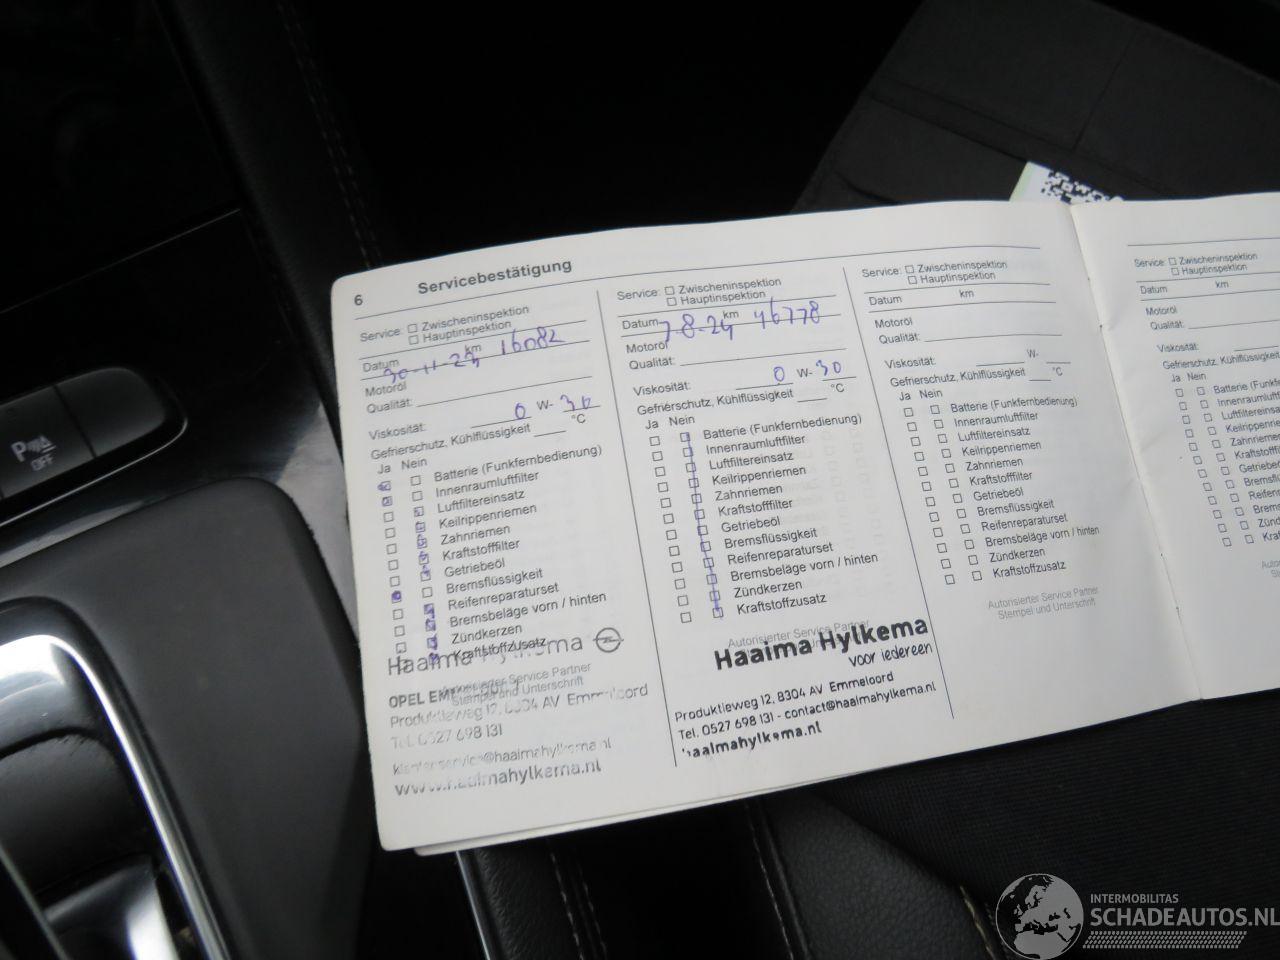 6 Servicebestätigung
Service: Zwischeninspektion
Hauptinspektion
Datum km
30-11-23 16082
Motoröl
Qualität:
Viskosität: 0 W- 30
Gefrierschutz, Kühlflüssigkeit °C
Ja Nein
Batterie (Funkfernbedienung)
Innenraumluftfilter
Luftfiltereinsatz
Keilrippenriemen
Zahnriemen
Kraftstofffilter
Getriebeöl
Bremsflüssigkeit
Reifenreparaturset
Bremsbeläge vorn / hinten
Zündkerzen
Kraftstoffzusatz
Haaima Hylkema
Autorisierter Service Partner
Stempel und Unterschrift
OPEL
Produktieweg 12, 8304 AV Emmeloord
Tel. 0527 698 131
klantenservice@haaimahylkema.nl
www.haaimahylkema.nl
Service: Zwischeninspektion
Hauptinspektion
Datum km
7-8-24 46778
Motoröl
Qualität:
Viskosität: 0 W- 30
Gefrierschutz, Kühlflüssigkeit °C
Ja Nein
Batterie (Funkfernbedienung)
Innenraumluftfilter
Luftfiltereinsatz
Keilrippenriemen
Zahnriemen
Kraftstofffilter
Getriebeöl
Bremsflüssigkeit
Reifenreparaturset
Bremsbeläge vorn / hinten
Zündkerzen
Kraftstoffzusatz
Autorisierter Service Partner
Haaima Hylkema
voor iedereen
Produktieweg 12, 8304 AV Emmeloord
Tel. 0527 698 131 - contact@haaimahylkema.nl
haaimahylkema.nl
Service: Zwischeninspektion
Hauptinspektion
Datum km
Motoröl
Qualität:
Viskosität: W-
Gefrierschutz, Kühlflüssigkeit °C
Ja Nein
Batterie (Funkfernbedienung)
Innenraumluftfilter
Luftfiltereinsatz
Keilrippenriemen
Zahnriemen
Kraftstofffilter
Getriebeöl
Bremsflüssigkeit
Reifenreparaturset
Bremsbeläge vorn / hinten
Zündkerzen
Kraftstoffzusatz
Autorisierter Service Partner
Stempel und Unterschrift
Service: Zwischeninspektion
Hauptinspektion
Datum km
Motoröl
Qualität:
Viskosität:
Gefrierschutz, Kühlflüssigkeit
Ja Nein
OFF
INTERMOBILITAS
SCHADEAUTOS.NL